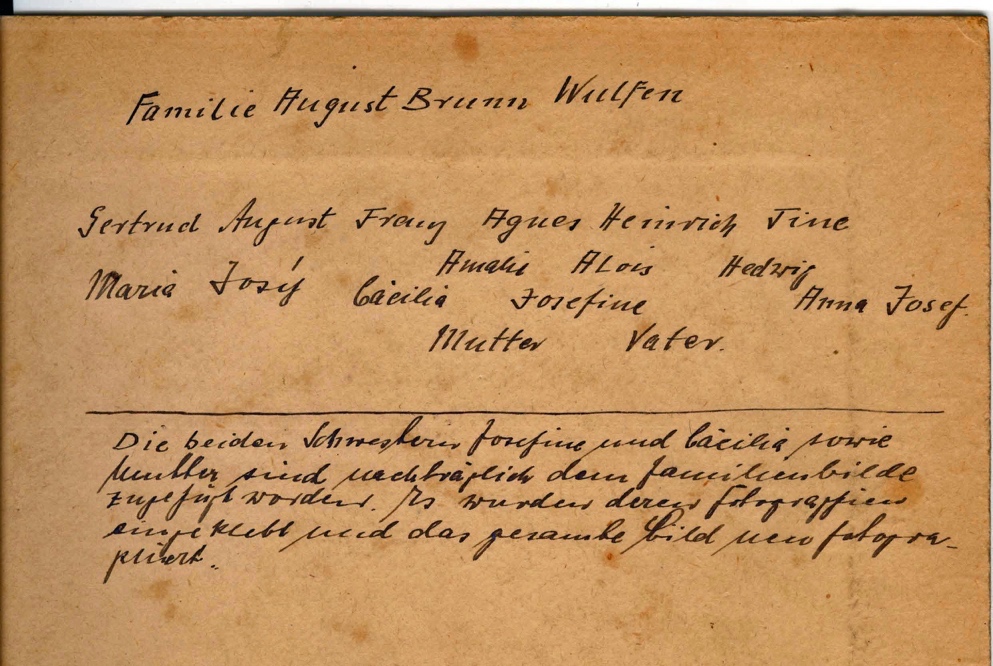 Familie August Brunn Wulfen
Gertrud August Franz Agnes Heinrich Tine
Amalie Alois Hedwig
Maria Josef Cäcilia Josefine Anna Josef.
Mutter Vater.
Die beiden Schwestern Josefine und Cäcilia sowie
Mutter sind nachträglich dem Familienbilde
zugefügt worden. Es wurden deren Fotograffien
eingeklebt und das gesamte Bild neu fotogra-
phiert.